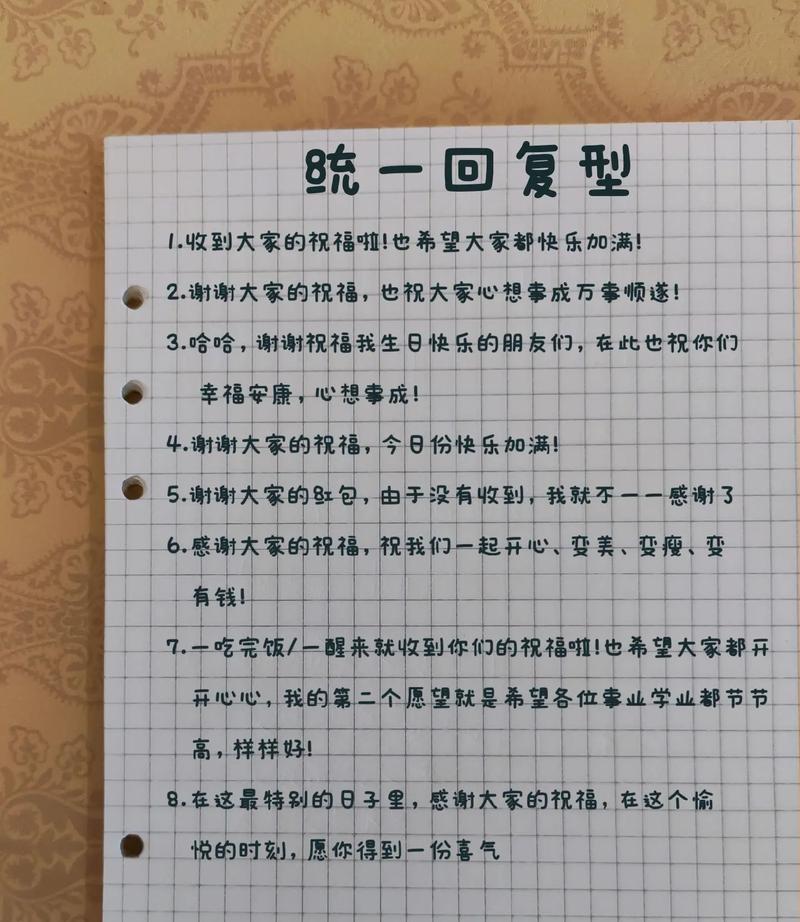 统一回复型
1.收到大家的祝福啦!也希望大家都快乐加满!
2.谢谢大家的祝福,也祝大家心想事成万事顺遂!
3.哈哈,谢谢祝福我生日快乐的朋友们,在此也祝你们
幸福安康,心想事成!
4.谢谢大家的祝福,今日份快乐加满!
5.谢谢大家的红包,由于没有收到,我就不一一感谢了
6.感谢大家的祝福,祝我们一起开心、变美、变瘦、变
有钱!
7.一吃完饭/一醒来就收到你们的祝福啦!也希望大家都开
开心心,我的第二个愿望就是希望各位事业学业都节节
高,样样好!
8.在这最特别的日子里,感谢大家的祝福,在这个愉
悦的时刻,愿你得到一份喜气